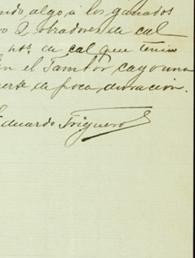 ndo algo á los ganados
o 2 obradores de cal
hts. de cal que tenia
en el Tambor cayo una
erte de poca duracion.
Eduardo Triguero